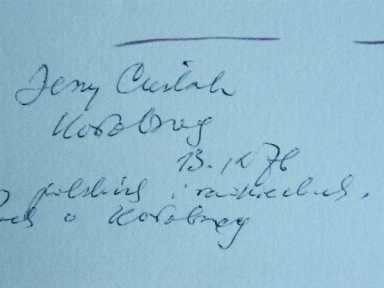 Jerzy Cieślak
Kołobrzeg
13. IX 76
polskich i radzieckich
o Kołobrzeg